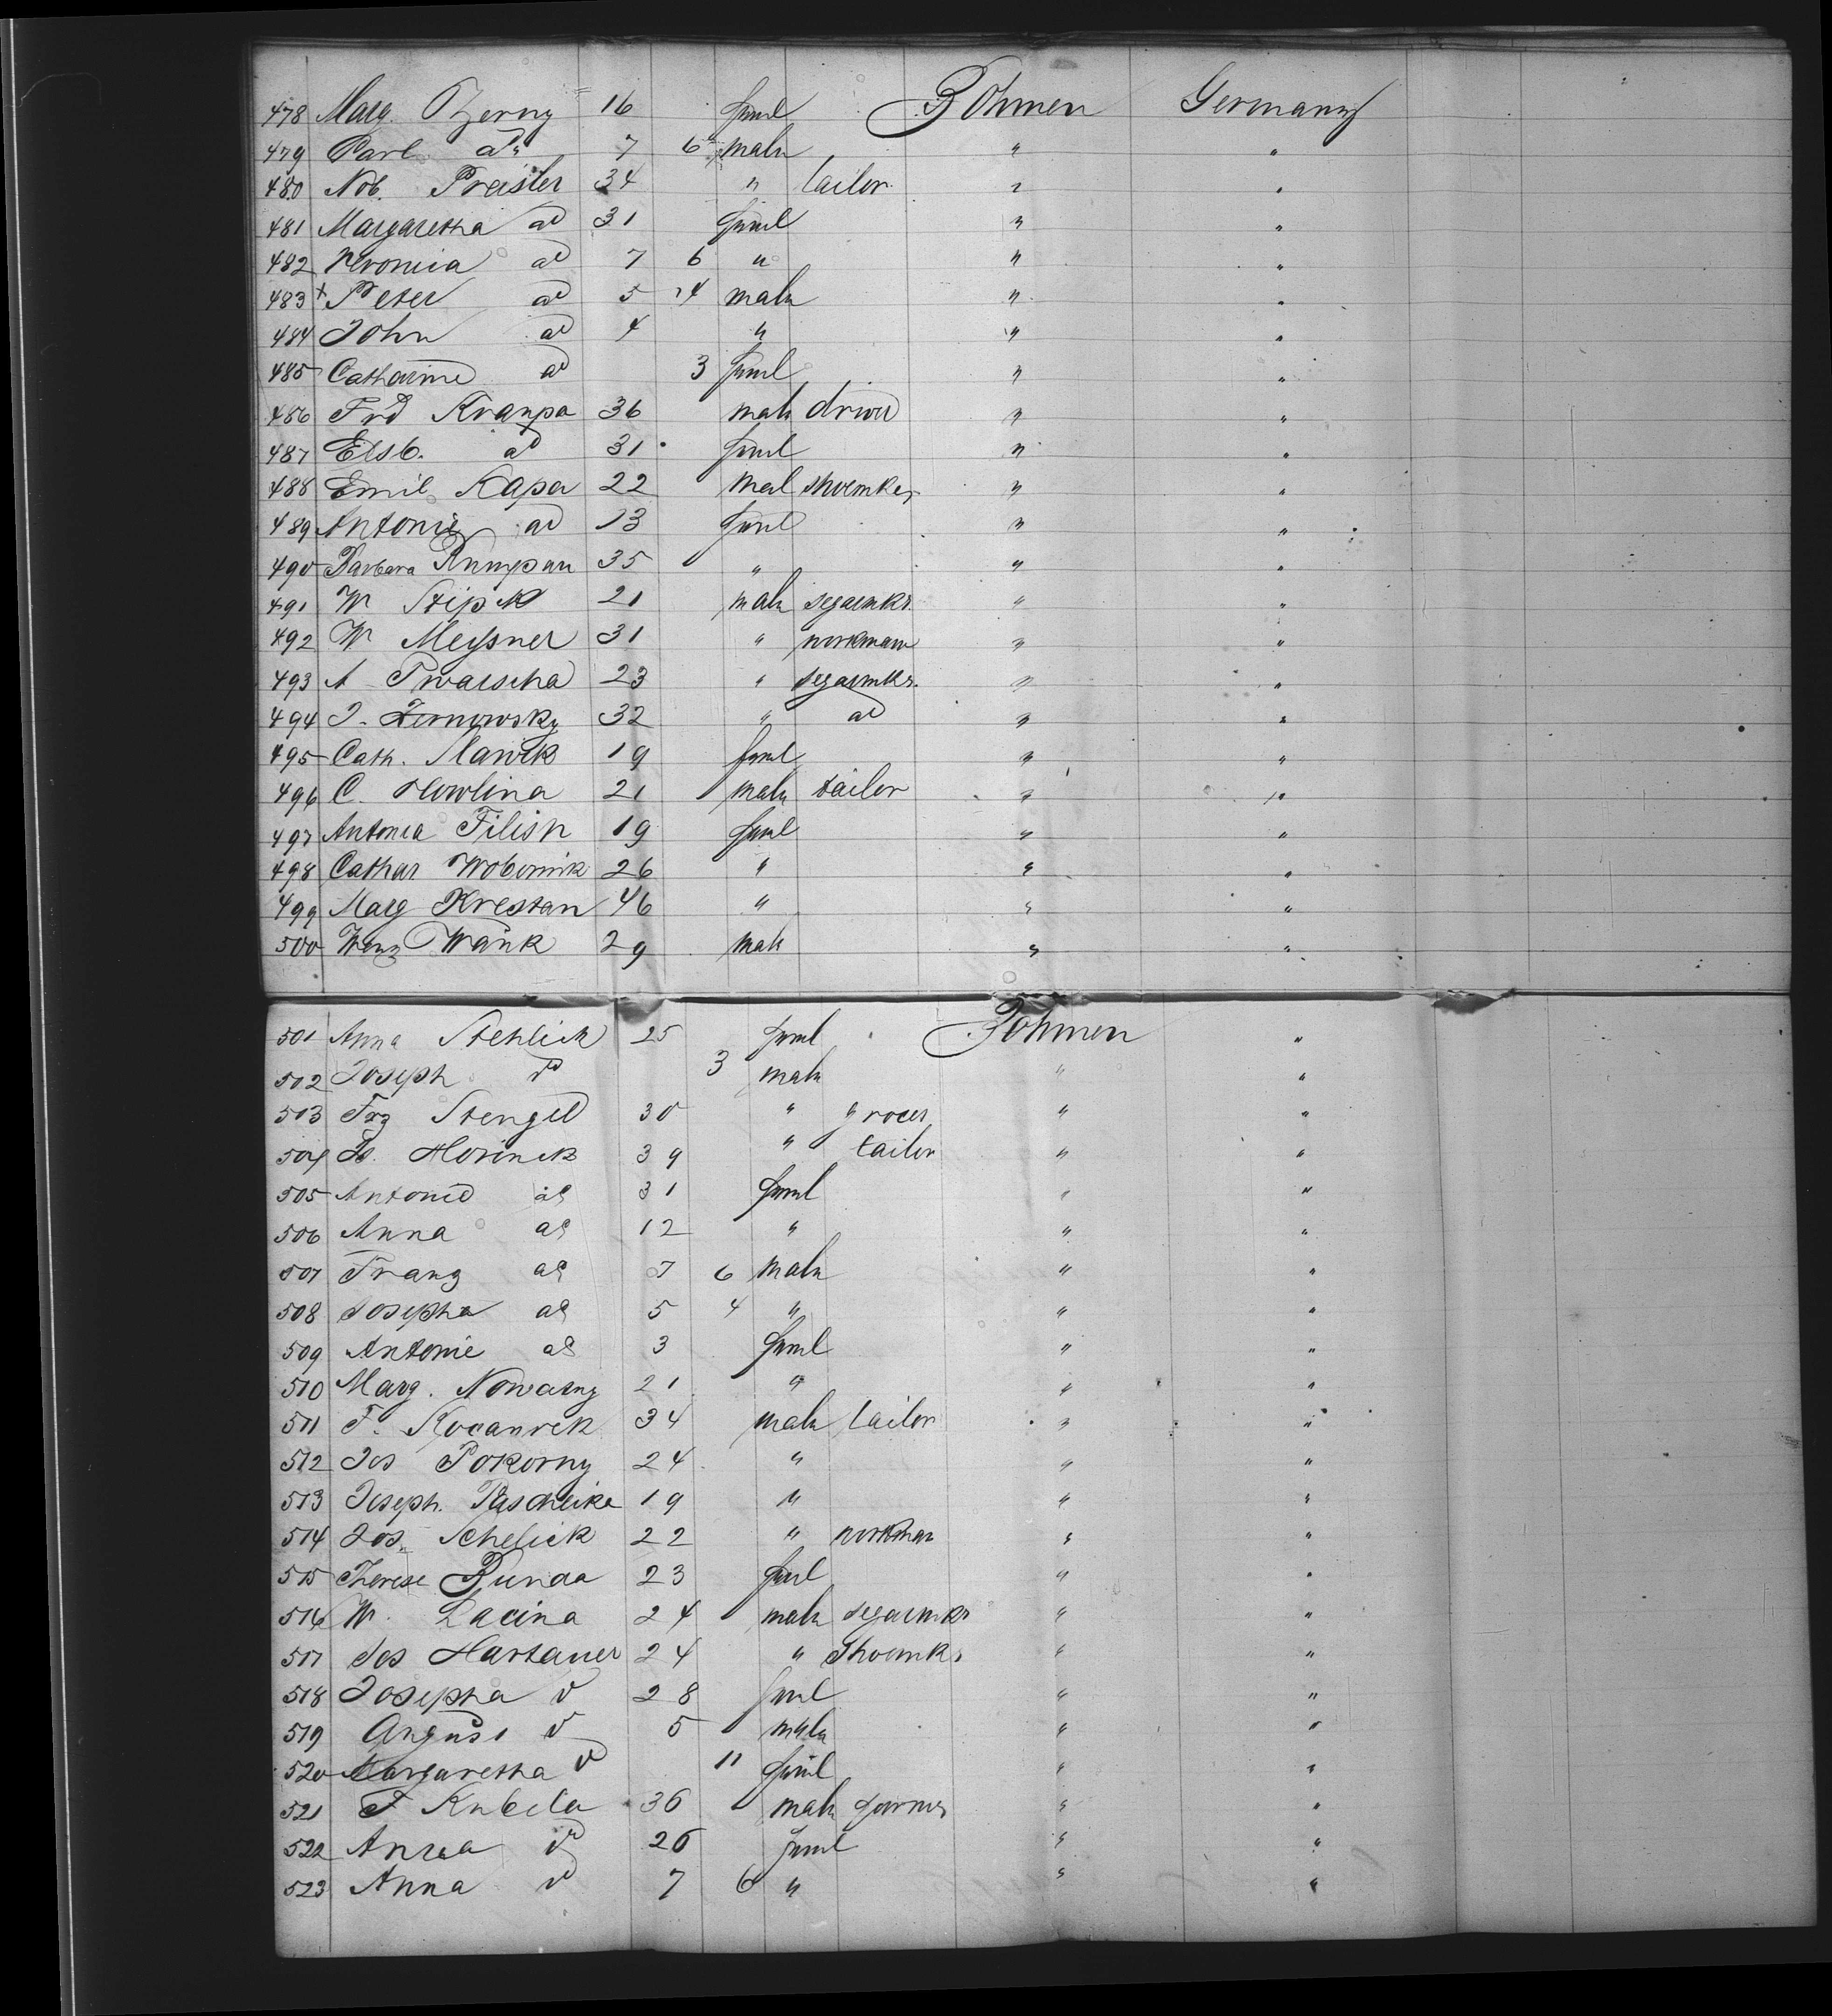 478 Marg. Czerny 16 feml Bohmen Germany
479 Carl do 7 6 male " "
480 Nob. Preisler 34 " tailor " "
481 Margaretha do 31 feml " "
482 Veronica do 7 6 " " "
483 + Peter do 5 4 male " "
484 John do 4 " " "
485 Catharine do 3 feml " "
486 Frd Krampa 36 male driver " "
487 Elsb. do 31 feml " "
488 Emil Kapa 22 mal shoemker " "
489 Antonie do 13 feml " "
490 Barbara 35 " " "
491 W 21 male segarmkr. " "
492 W Meyssner 31 " workman " "
493 A Twarscha 23 " segarmkr. " "
494 J. Zernowsky 32 " do " "
495 Cath. Slawik 19 feml " "
496 C. 21 male tailor " "
497 Antonia Filish 19 feml " "
498 Cathar Wobornik 26 " " "
499 Marg Krestan 46 " " "
500 Wenz Wank 29 male " "
501 Anna Stehlick 25 feml Bohmen "
502 Joseph do 3 male " "
503 Frz Stengel 30 " grocer " "
504 Horinek 39 " tailor " "
505 Antonie do 31 feml " "
506 Anna do 12 " " "
507 Franz do 7 6 male " "
508 Josepha do 5 4 " " "
509 Antonie do 3 feml " "
510 Marg. Nowatny 21 " " "
511 F. Kocanrek 34 male tailor " "
512 Jos Pokorny 24 " " "
513 Joseph. Pascheike 19 " " "
514 Jos. Schelick 22 " workman " "
515 Therese Bunda 23 feml " "
516 W. Lacina 24 male segarmkr " "
517 Jos Hartauer 24 " Shoemkr " "
518 Josepha do 28 feml " "
519 August do 5 male " "
520 Margaretha do 11 feml " "
521 F Kubela 36 male farmer " "
522 Anna do 26 feml " "
523 Anna do 7 6 " " "